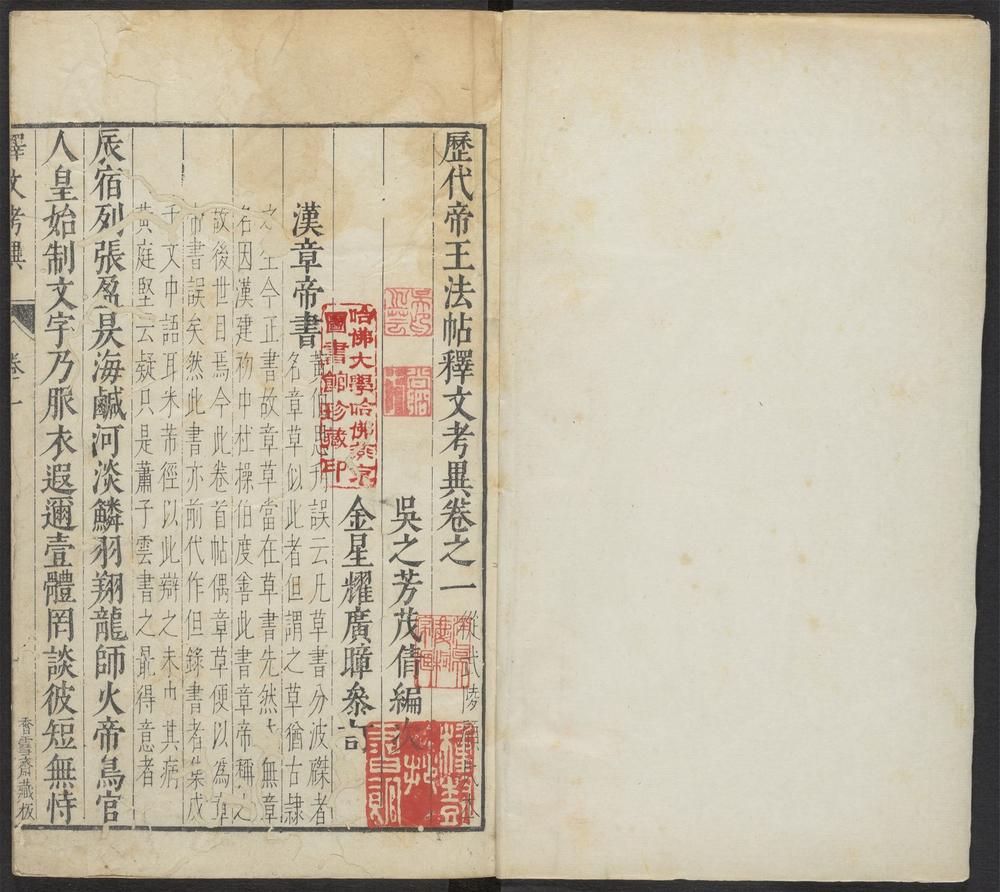 歷代帝王法帖釋文考異卷之一
從武陵顧氏本
吳之芳茂倩編次
金星耀廣暲叅訂
漢章帝書
黃伯思刋誤云凡草書分波磔者
名章草似此者但謂之草猶古隷
之生今正書故章草當在草書先然
無章
名因漢建初中杜操伯度善此書章帝稱之
故後世目焉今此卷首帖偶章草便以為章
帝書誤矣然此書亦前代作但錄書者集成
千文中語耳米芾徑以此辯之未中其病
黃庭堅云疑只是蕭子雲書之最得意者
辰宿列張盈昃海鹹河淡鱗羽翔龍師火帝鳥官
人皇始制文字乃服衣遐邇壹體罔談彼短無恃
釋文考異
卷一
香雪齋藏板
哈佛大學哈佛燕京
圖書館珍藏印